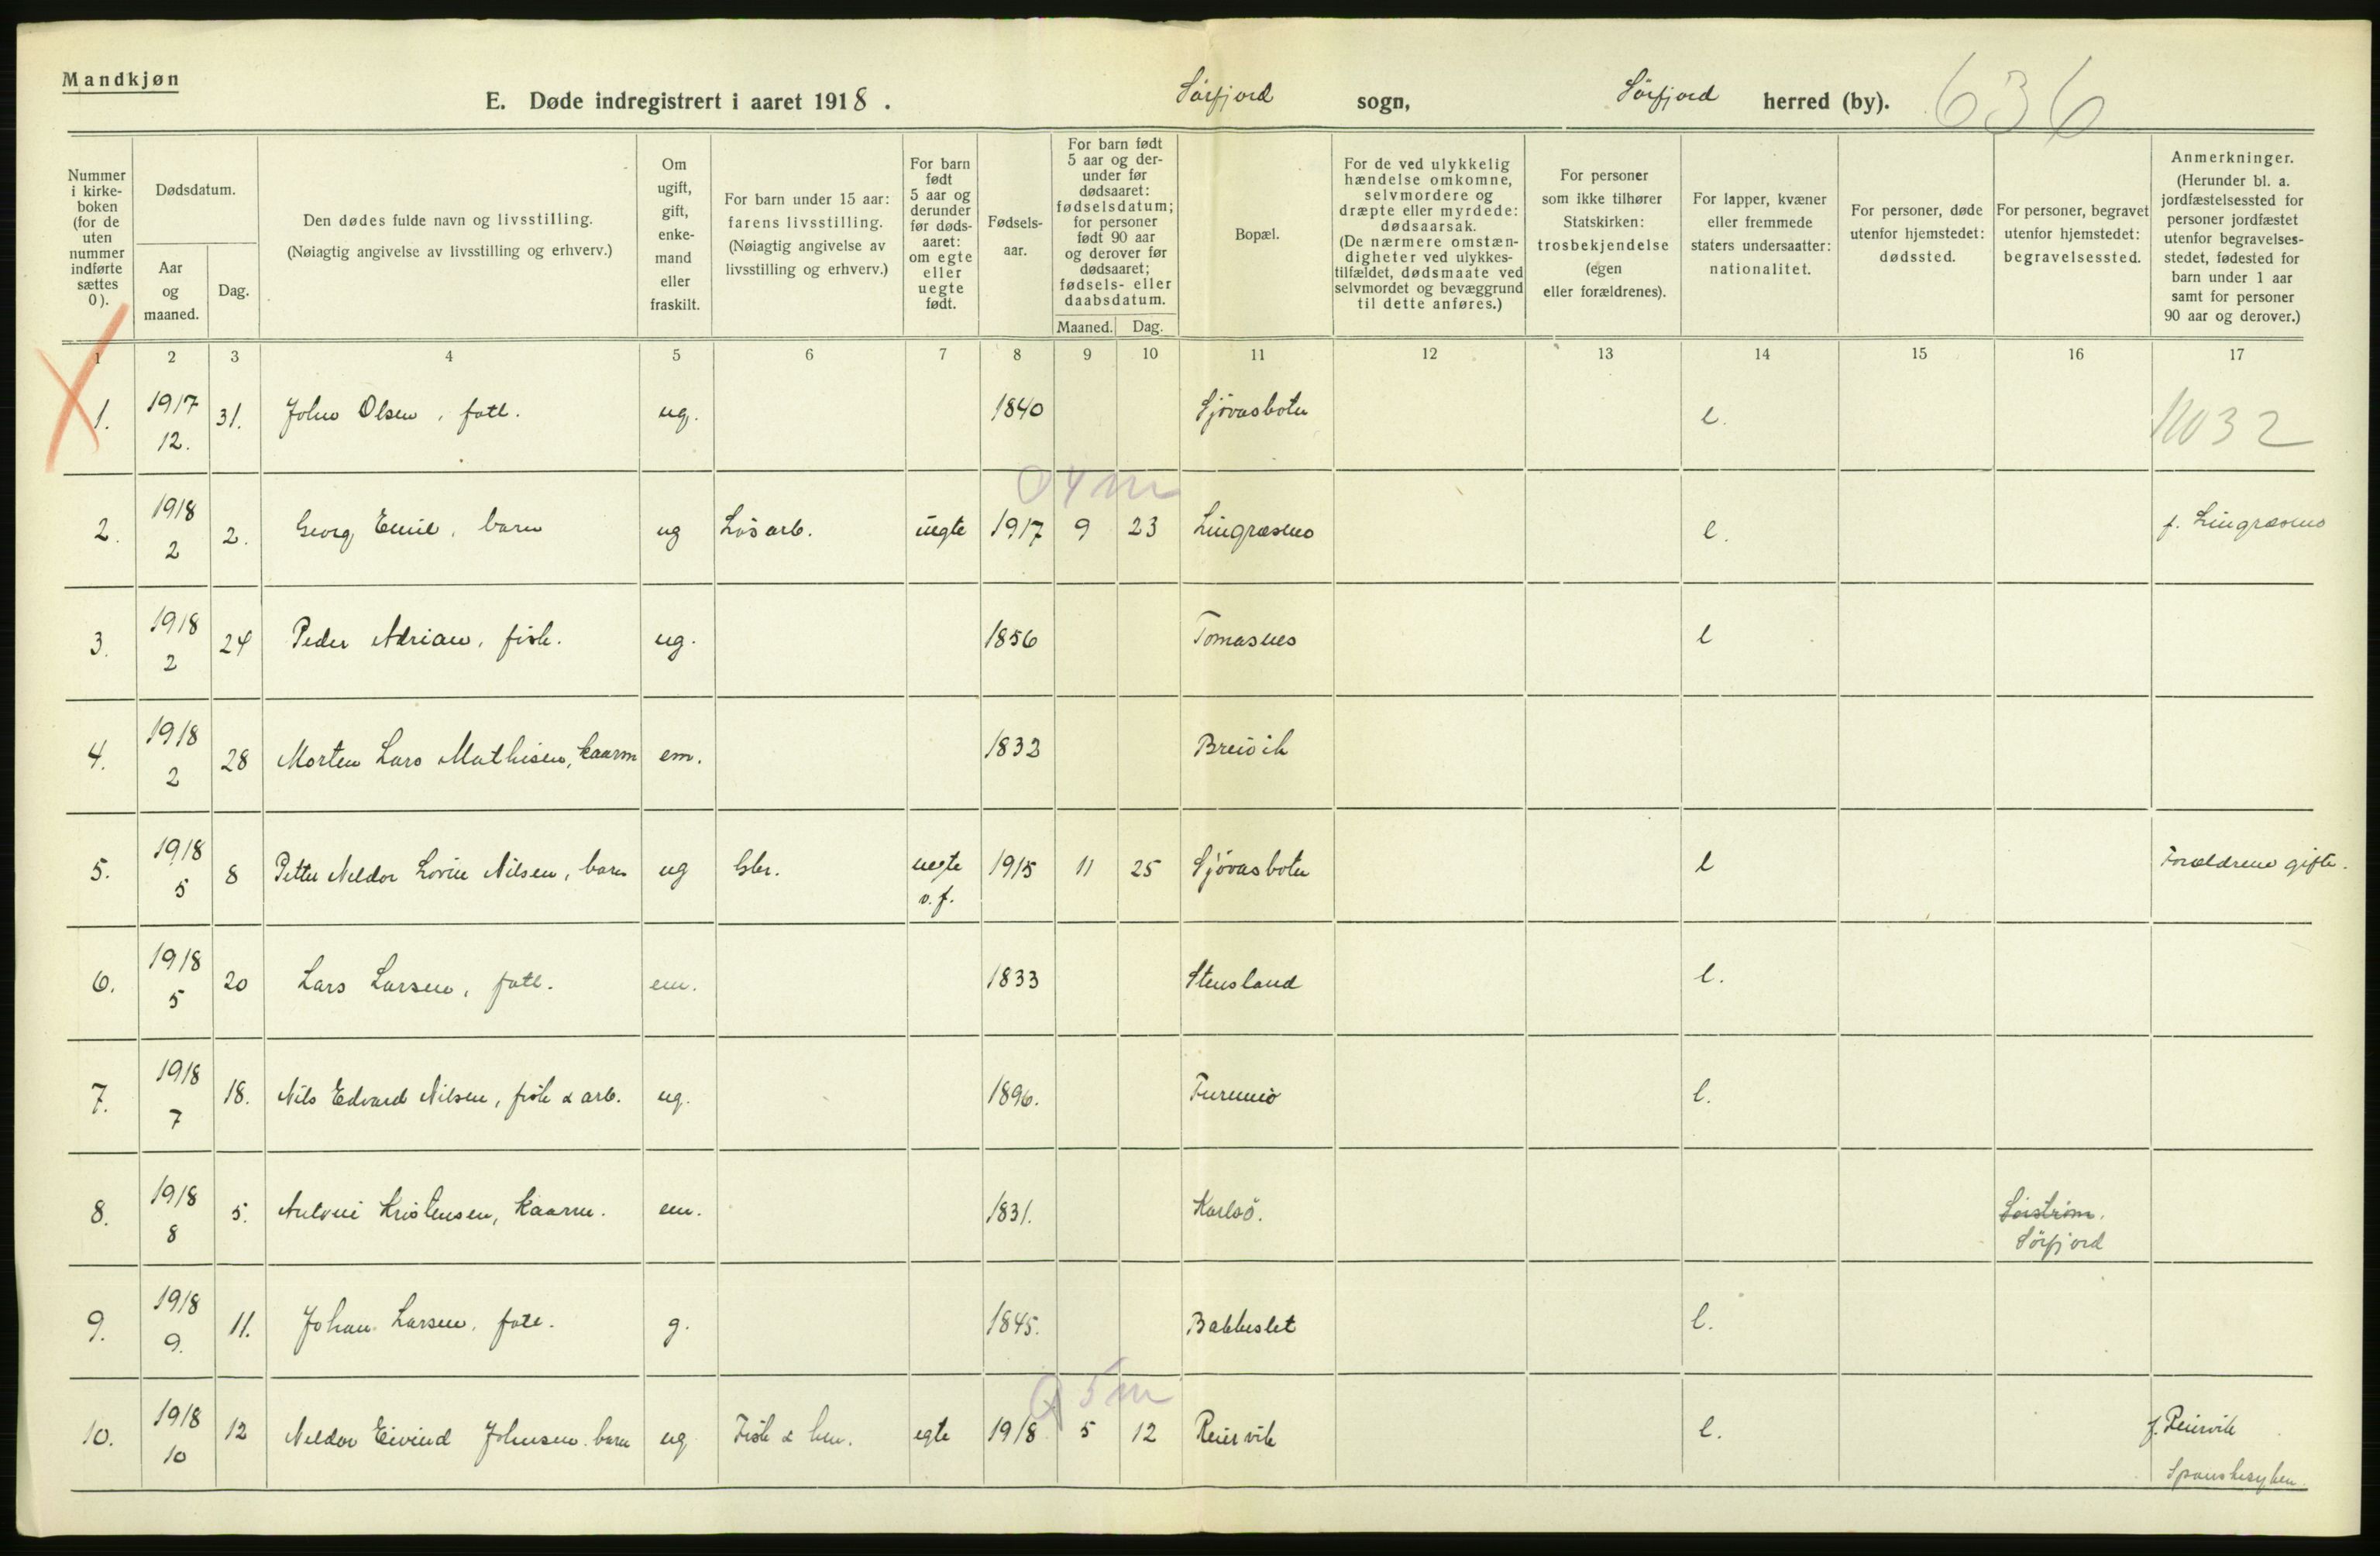 Mandkjøn
E. Døde indregistrert i aaret 1918. Sörfjord sogn, Sörfjord herred (by). 636
Nummer i kirke-boken (for de uten nummer indførte sættes 0).
Dødsdatum.
Aar og maaned.
Dag.
Den dødes fulde navn og livsstilling.
(Nøiagtig angivelse av livsstilling og erhverv.)
Om ugift, gift, enke-mand eller fraskilt.
For barn under 15 aar: farens livsstilling. (Nøiagtig angivelse av livsstilling og erhverv.)
For barn født 5 aar og derunder før døds-aaret: om egte eller uegte født.
Fødsels-aar.
For barn født 5 aar og der-under før dødsaaret: fødselsdatum; for personer født 90 aar og derover før dødsaaret; fødsels- eller daabsdatum.
Maaned. Dag.
Bopæl.
For de ved ulykkelig hændelse omkomne, selvmordere og dræpte eller myrdede: dødsaarsak. (De nærmere omstæn-digheter ved ulykkes-tilfældet, dødsmaate ved selvmordet og bevæggrund til dette anføres.)
For personer som ikke tilhører Statskirken: trosbekjendelse (egen eller forældrenes).
For lapper, kvæner eller fremmede staters undersaatter: nationalitet.
For personer, døde utenfor hjemstedet: dødssted.
For personer, begravet utenfor hjemstedet: begravelsessted.
Anmerkninger. (Herunder bl. a. jordfæstelsessted for personer jordfæstet utenfor begravelses-stedet, fødested for barn under 1 aar samt for personer 90 aar og derover.)
1 2 3 4 5 6 7 8 9 10 11 12 13 14 15 16 17
1. 1917 12. 31. John Olsen, fatl. ug. 1840 Sjövasboten l. 1032
04m
2. 1918 2 2. Georg Emil, barn ug Lös arb. uegte 1917 9 23 Lingrasnes l. f. Lingrasnes
3. 1918 2 24 Peder Adrian, fisk. ug. 1856 Tomasnes l
4. 1918 2 28 Morten Lars Mathisen, kaarm em. 1832 Breivik
5. 1918 5 8 Petter Meldor Lovin Nilsen, barn ug Gbr. uegte o.f. 1915 11 25 Sjövasboten l Forældrene gifte.
6. 1918 5 20 Lars Larsen, fatl. em. 1833 Stensland l.
7. 1918 7 18. Nils Edvard Nilsen, fisk & arb. ug. 1896. Furumo l.
8. 1918 8 5. Antoni Kristensen, Kaarm. em. 1831. Karlsö. Sörfjord
9. 1918 9. 11. Johan Larsen, fatl. g. 1845. Bakkeslet l.
0 5m
10. 1918 10 12 Meldor Eivind Johnsen barn ug Fisk & egte 1918 5 12 Reiervik l. f. Reiervik
Spanskesyken.